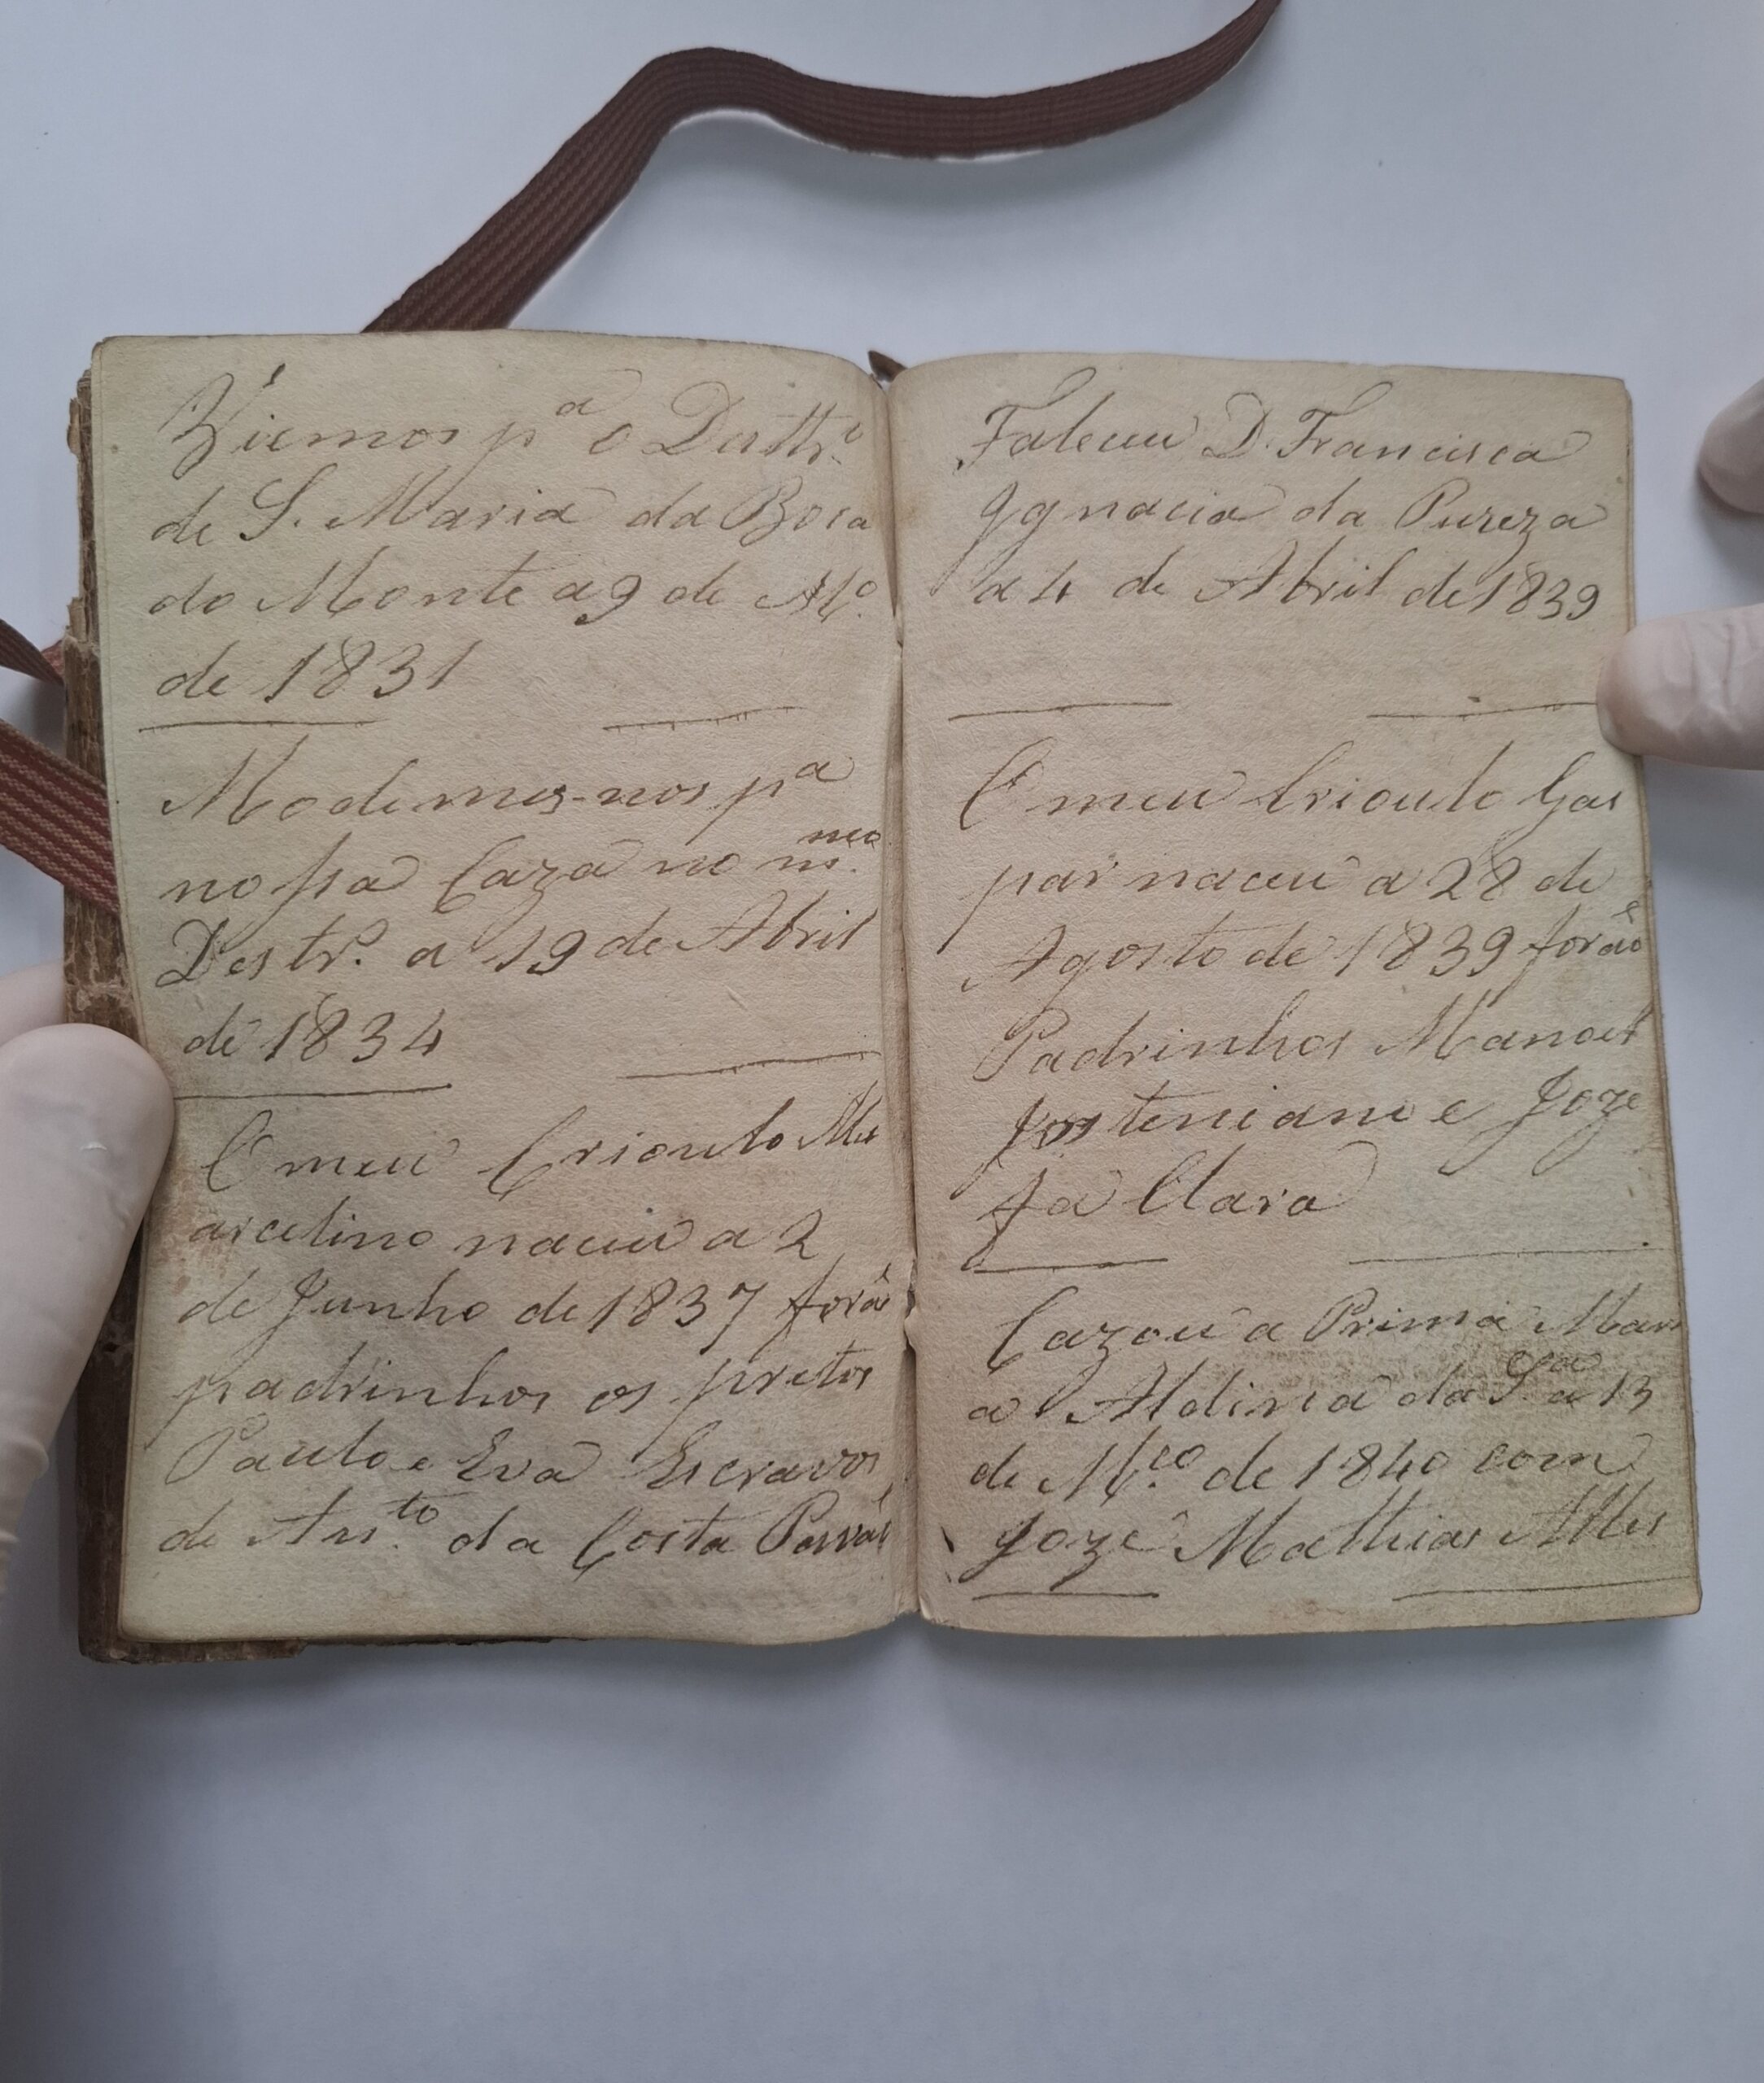 Viemos pª o Destrº
de S. Maria da Boca
do Monte a 9 de Mº
de 1831
Modemos-nos pª
nossa Caza no mmo
Destrº a 19 de Abril
de 1834
O meu Crioulo M
arcelino naceu a 2
de Junho de 1837 forão
padrinhos os pretos
Paulo e Eva Escravos
de Antº da Costa
Faleceu D. Francisca
Ignacia da Pureza
a 4 de Abril de 1839
O meu Crioulo Gas
par naceu a 28 de
Agosto de 1839 forão
Padrinhos Manoel
e Joze
fa Clara
Cazou a Prima Mari
a Aldina da Sª a 13
de Mço de 1840 com
Joze Mathias Alles